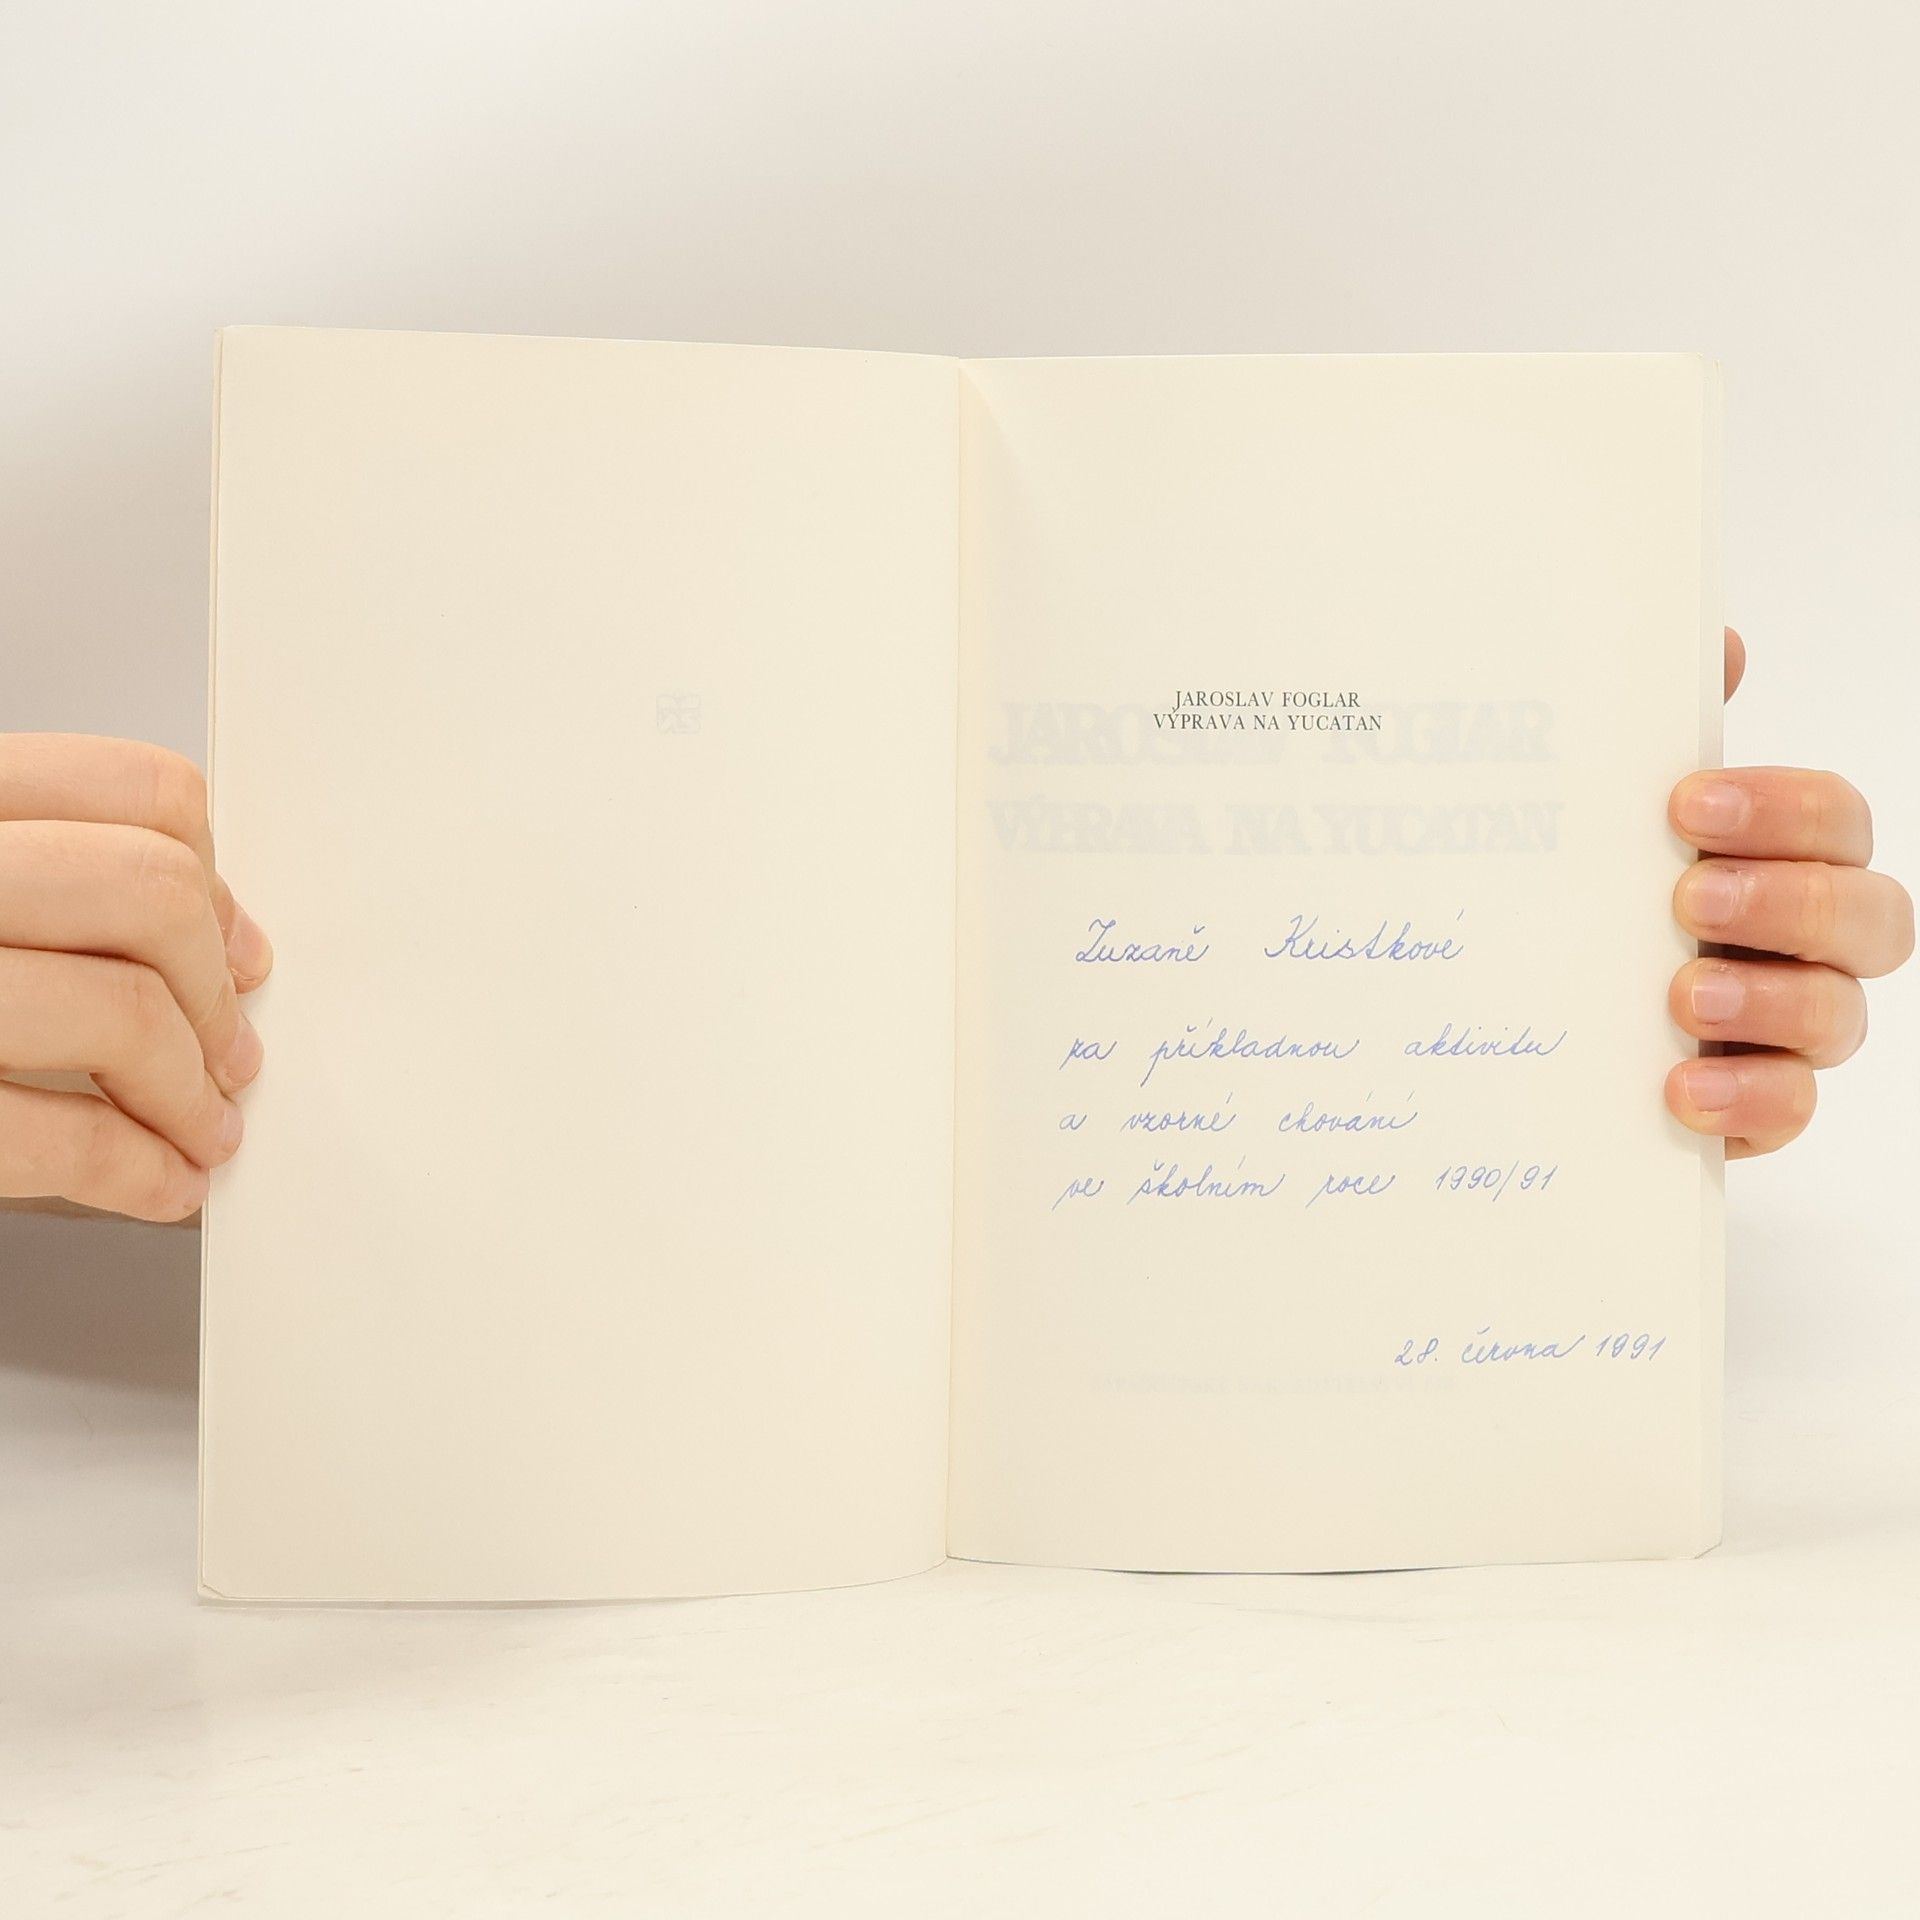 JAROSLAV FOGLAR
VÝPRAVA NA YUCATAN
JAROSLAV FOGLAR
VÝPRAVA NA YUCATAN
Zuzaně Kristkové
za příkladnou aktivitu
a vzorné chování
ve školním roce 1990/91
28. června 1991